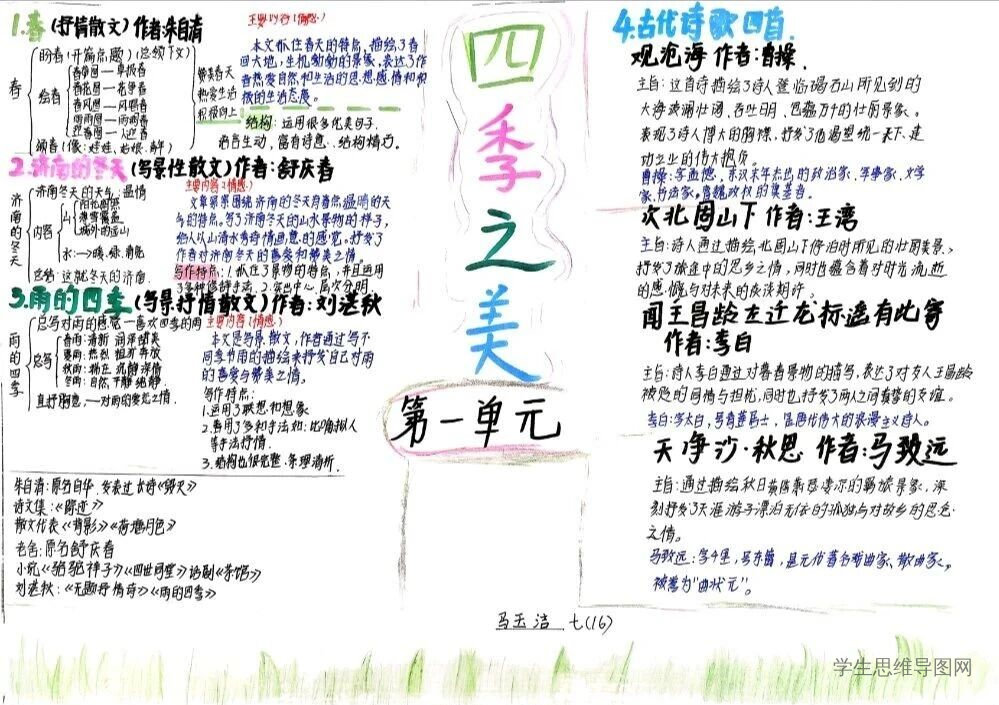 四季之美
第一单元
1.春(抒情散文)作者:朱自清
春
盼春(开篇点题)(总领下文)
绘春
春草图—草报春
春花图—花争春
春风图—风唱春
春雨图—雨润春
迎春图—人迎春
颂春(像:娃娃、姑娘、青年)
赞美春天
热爱生活
积极向上
主要内容(情感)
本文抓住春天的特点,描绘了春
回大地,生机勃勃的景象,表达了作
者热爱自然和生活的思想感情和积
极的生活态度。
结构:运用很多优美句子.
语言生动,富有诗意.结构精巧。
2.济南的冬天(写景性散文)作者:舒庆春
济南的冬天
济南冬天的天气:温情
内容
山
阳光图景
薄雪覆盖
城外的远山
水:→暖.绿.清亮
总结:这就冬天的济南.
主要内容:(情感)
文章紧紧围绕济南的冬天有着点温晴的天
气的特点。写了济南冬天的山水景物的样子,
给人以山清水秀诗情画意的感觉。抒发了
作者对济南冬天的喜爱和赞美之情。
写作特点:1.抓住了景物的特点,并且运用
了多种修辞手法.2.突出中心.层次分明.
3.雨的四季(写景抒情散文)作者:刘湛秋
雨的四季
总写对雨的感觉—喜欢四季的雨
总写
春雨:清新 润泽甜美
夏雨:热烈 粗犷奔放
秋雨:端庄 沉静深情
冬雨:自然 平静纯静
直抒胸意.一对雨的爱恋之情。
主要内容(情感)
本文是写景.散文,作者通过写不
同季节雨的描绘来抒发自己对雨
的喜爱与赞美之情。
写作特点:
1.运用了联想和想象
2.善用了多种手法如:比喻拟人
等手法抒情.
3.结构也很完整.条理清晰.
朱自清:原名自华.发表过长诗《毁灭》
诗文集:《踪迹》
散文代表《背影》《荷塘月色》
老舍:原名舒庆春
小说《骆驼祥子》《四世同堂》话剧《茶馆》
刘湛秋:《无题抒情诗》《雨的四季》
4.古代诗歌四首.
观沧海 作者:曹操.
主旨:这首诗描绘了诗人登临碣石山所见到的
大海波澜壮阔、吞吐日月、包蕴万千的壮丽景象。
表现了诗人博大的胸襟、抒发了渴望统一天下、建
功立业的伟大抱负。
曹操:字孟德、东汉末年杰出的政治家、军事家、文学
家、书法家。曹魏政权的奠基者。
次北固山下 作者:王湾
主旨:诗人通过描绘北固山下停泊时所见的壮丽美景,
抒发了旅途中的思乡之情,同时也蕴含着对时光流逝
的感慨与对未来的
闻王昌龄左迁龙标遥有此寄
作者:李白
主旨:诗人李白通过对暮春景物的描写,表达了对友人王昌龄
被贬的同情与担忧,同时也抒发了两人之间真挚的友谊。
李白:字太白、号青莲居士,是唐代伟大的浪漫主义诗人。
天净沙·秋思 作者:马致远
主旨:通过描绘秋日黄昏萧瑟凄凉的羁旅景象,深
刻抒发了天涯游子漂泊无依的孤独与对故乡的思念
之情。
马致远:字千里、号东篱,是元代著名戏曲家、散曲家,
被誉为"曲状元"。
马玉洁 七(16)
学生思维导图网